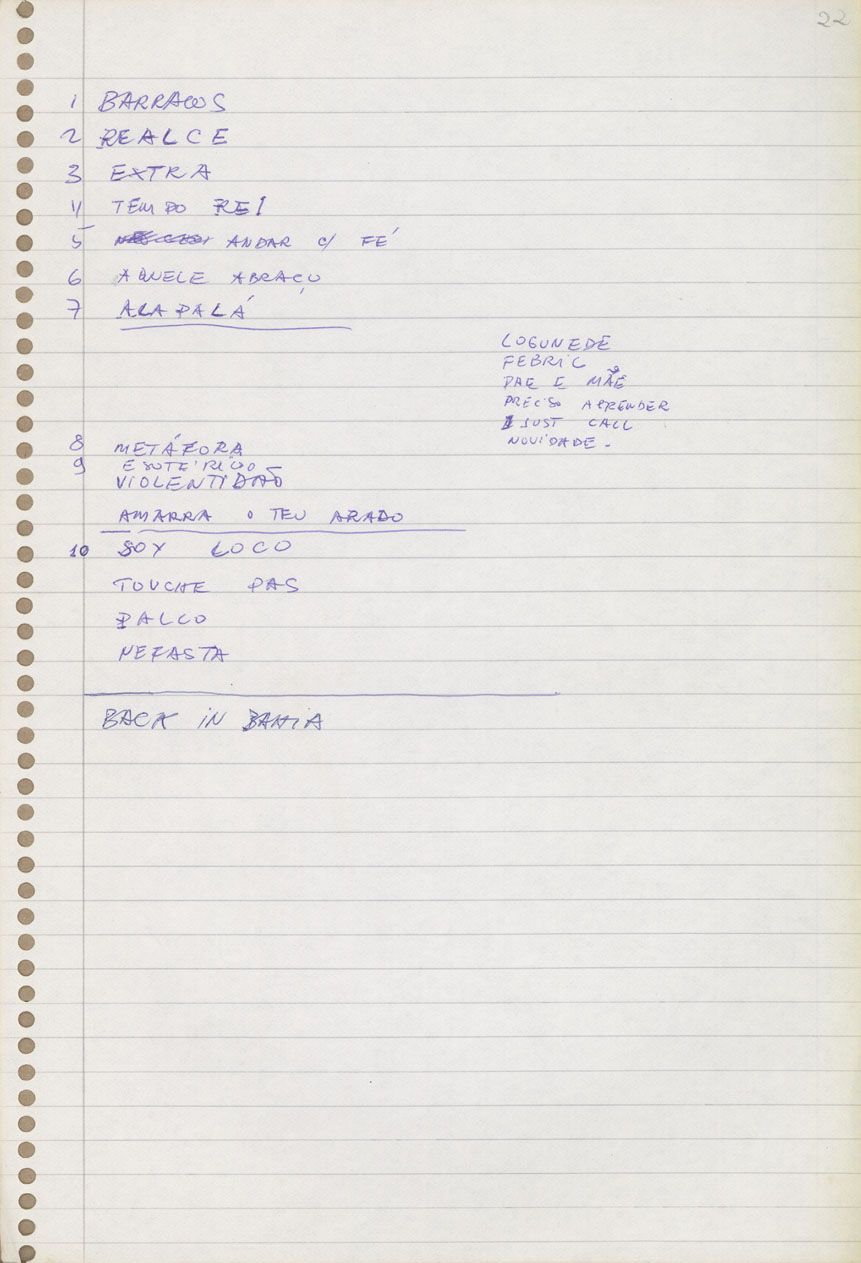 22
1 BARRACOS
2 REALCE
3 EXTRA
4 TEMPO REI
5 ANDAR C/ FÉ
6 AQUELE ABRAÇO
7 ALAPALÁ
LOGUNEDE
FEBRIL
PAE E MÃE
PRECISO APRENDER
I JUST CALL
NOVIDADE -
8 METÁFORA
9 ESOTÉRICO
VIOLENTIDÃO
AMARRA O TEU ARADO
10 SOY LOCO
TOUCHE PAS
PALCO
NEFASTA
BACK IN BAHIA